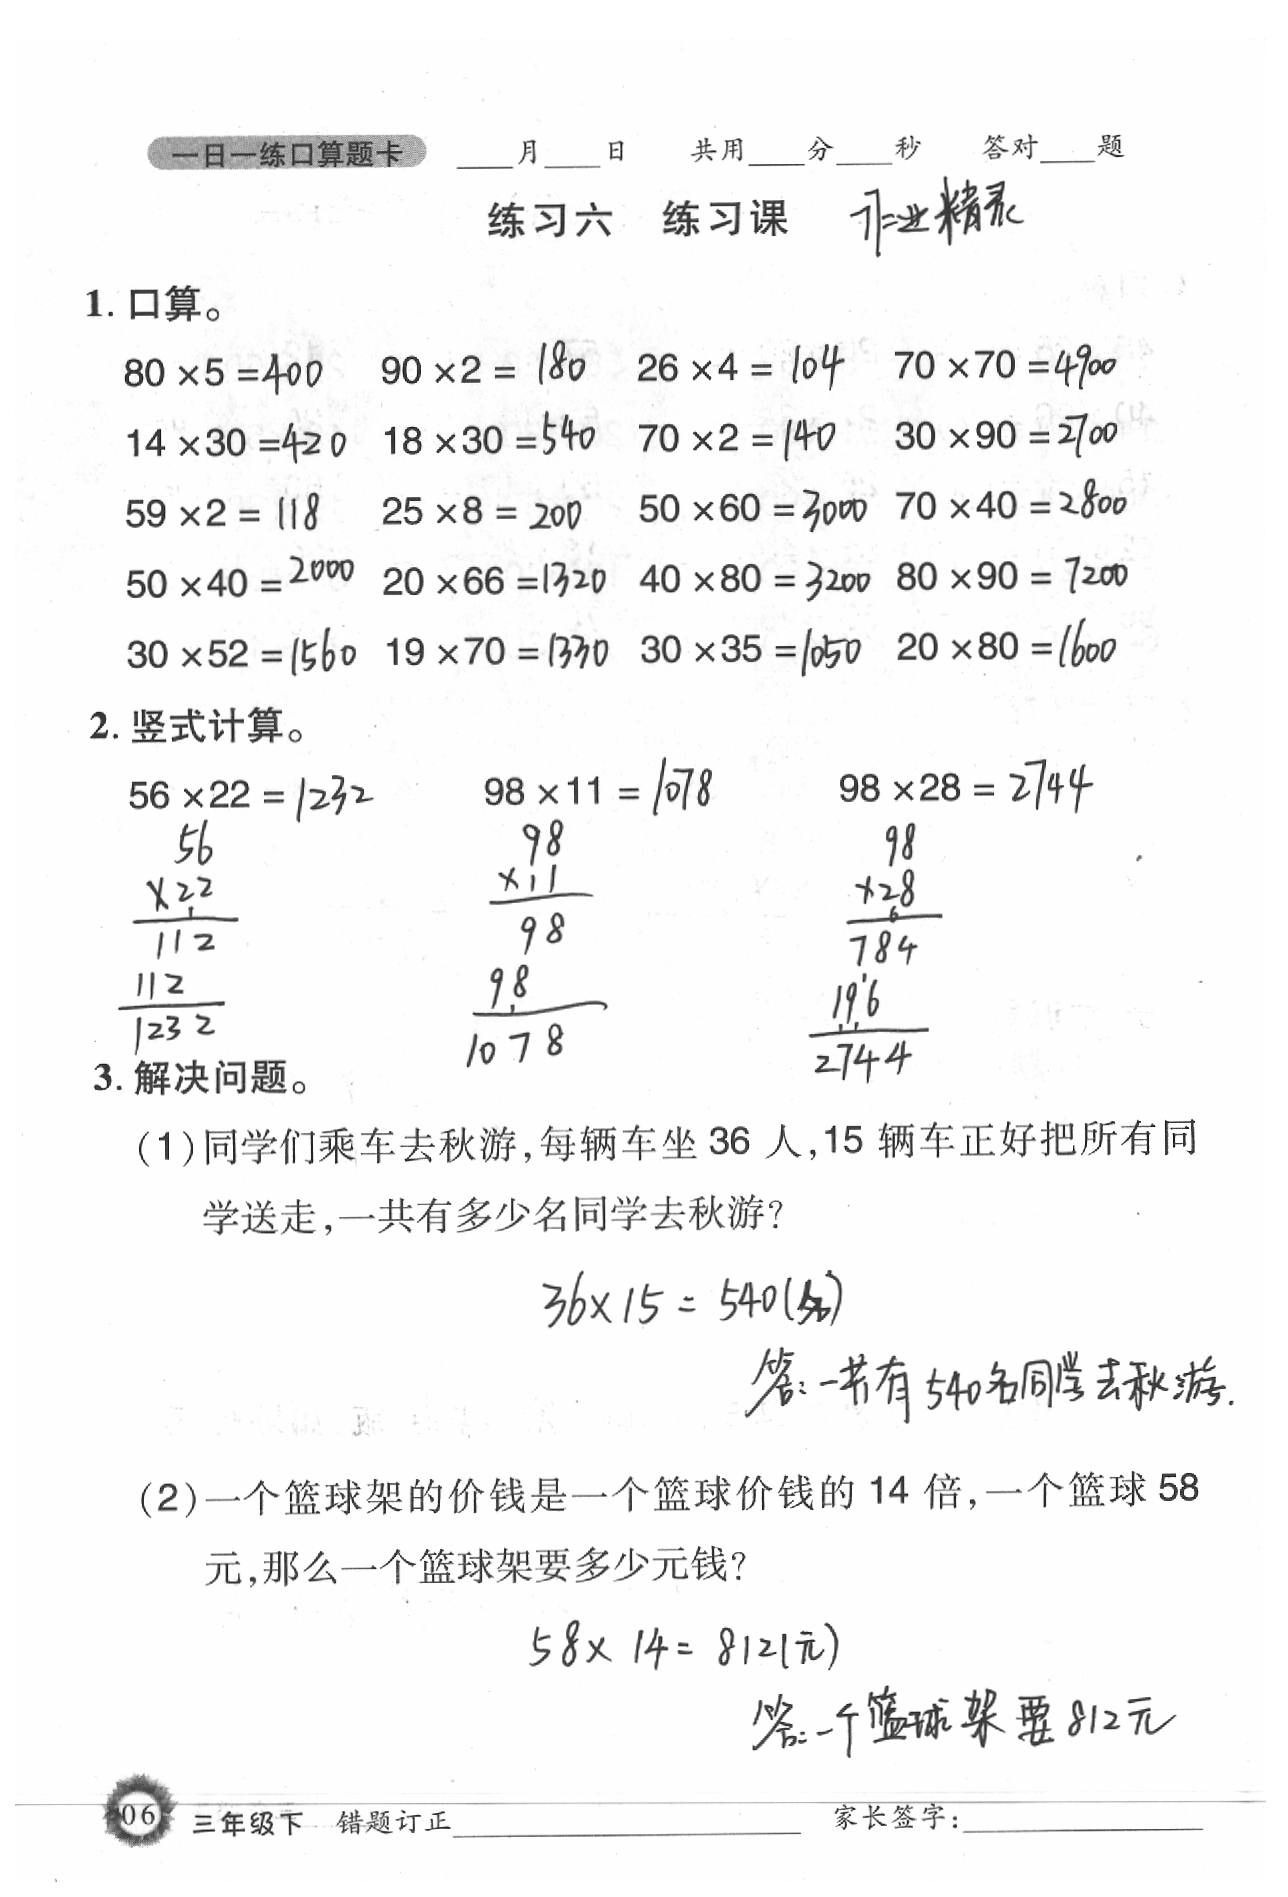 一日一练口算题卡 ____月____日 共用____分____秒 答对____题
练习六 练习课 作业精灵
1. 口算。
80×5=400 90×2=180 26×4=104 70×70=4900
14×30=420 18×30=540 70×2=140 30×90=2700
59×2=118 25×8=200 50×60=3000 70×40=2800
50×40=2000 20×66=1320 40×80=3200 80×90=7200
30×52=1560 19×70=1330 30×35=1050 20×80=1600
2. 竖式计算。
56×22=1232 98×11=1078 98×28=2744
56 98 98
×22 ×11 ×28
1 6
112 98 784
112 98 196
1232 1078 2744
3. 解决问题。
(1)同学们乘车去秋游,每辆车坐 36 人,15 辆车正好把所有同
学送走,一共有多少名同学去秋游?
36×15=540(名)
答:一共有540名同学去秋游.
(2)一个篮球架的价钱是一个篮球价钱的 14 倍,一个篮球 58
元,那么一个篮球架要多少元钱?
58×14=812(元)
答:一个篮球架要812元
06 三年级下 错题订正____ 家长签字:____